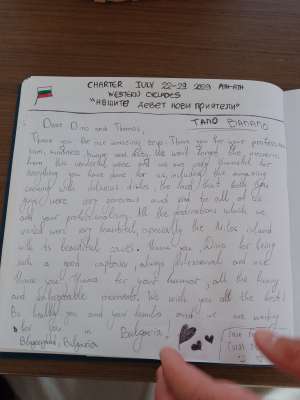 CHARTER JULY 22-29 2023 ATH-ATH
WESTERN CYCLADES
"НАШИТЕ ДЕВЕТ НОВИ ПРИЯТЕЛИ"
Dear Dino and Thomas,
Thank you for the amazing trip! Thank you for your
from this wonderful week and we are very thankful for
everything you have done for us, including the amazing
cooking with delicious dishes, the food that both you
guys were very generous and kind to all of us
and your professionalism. All the destinations which we
visited were very beautiful, especially the Milos island
with its beautiful caves. Thank you, Dino for being
such a good captain, always professional and we
thank you Thomas for your humour, all the funny
and unforgettable moments. We wish you all the best!
Be healthy you and your families and we are waiting
for you in Bulgaria!
Blagoevgrad, Bulgaria